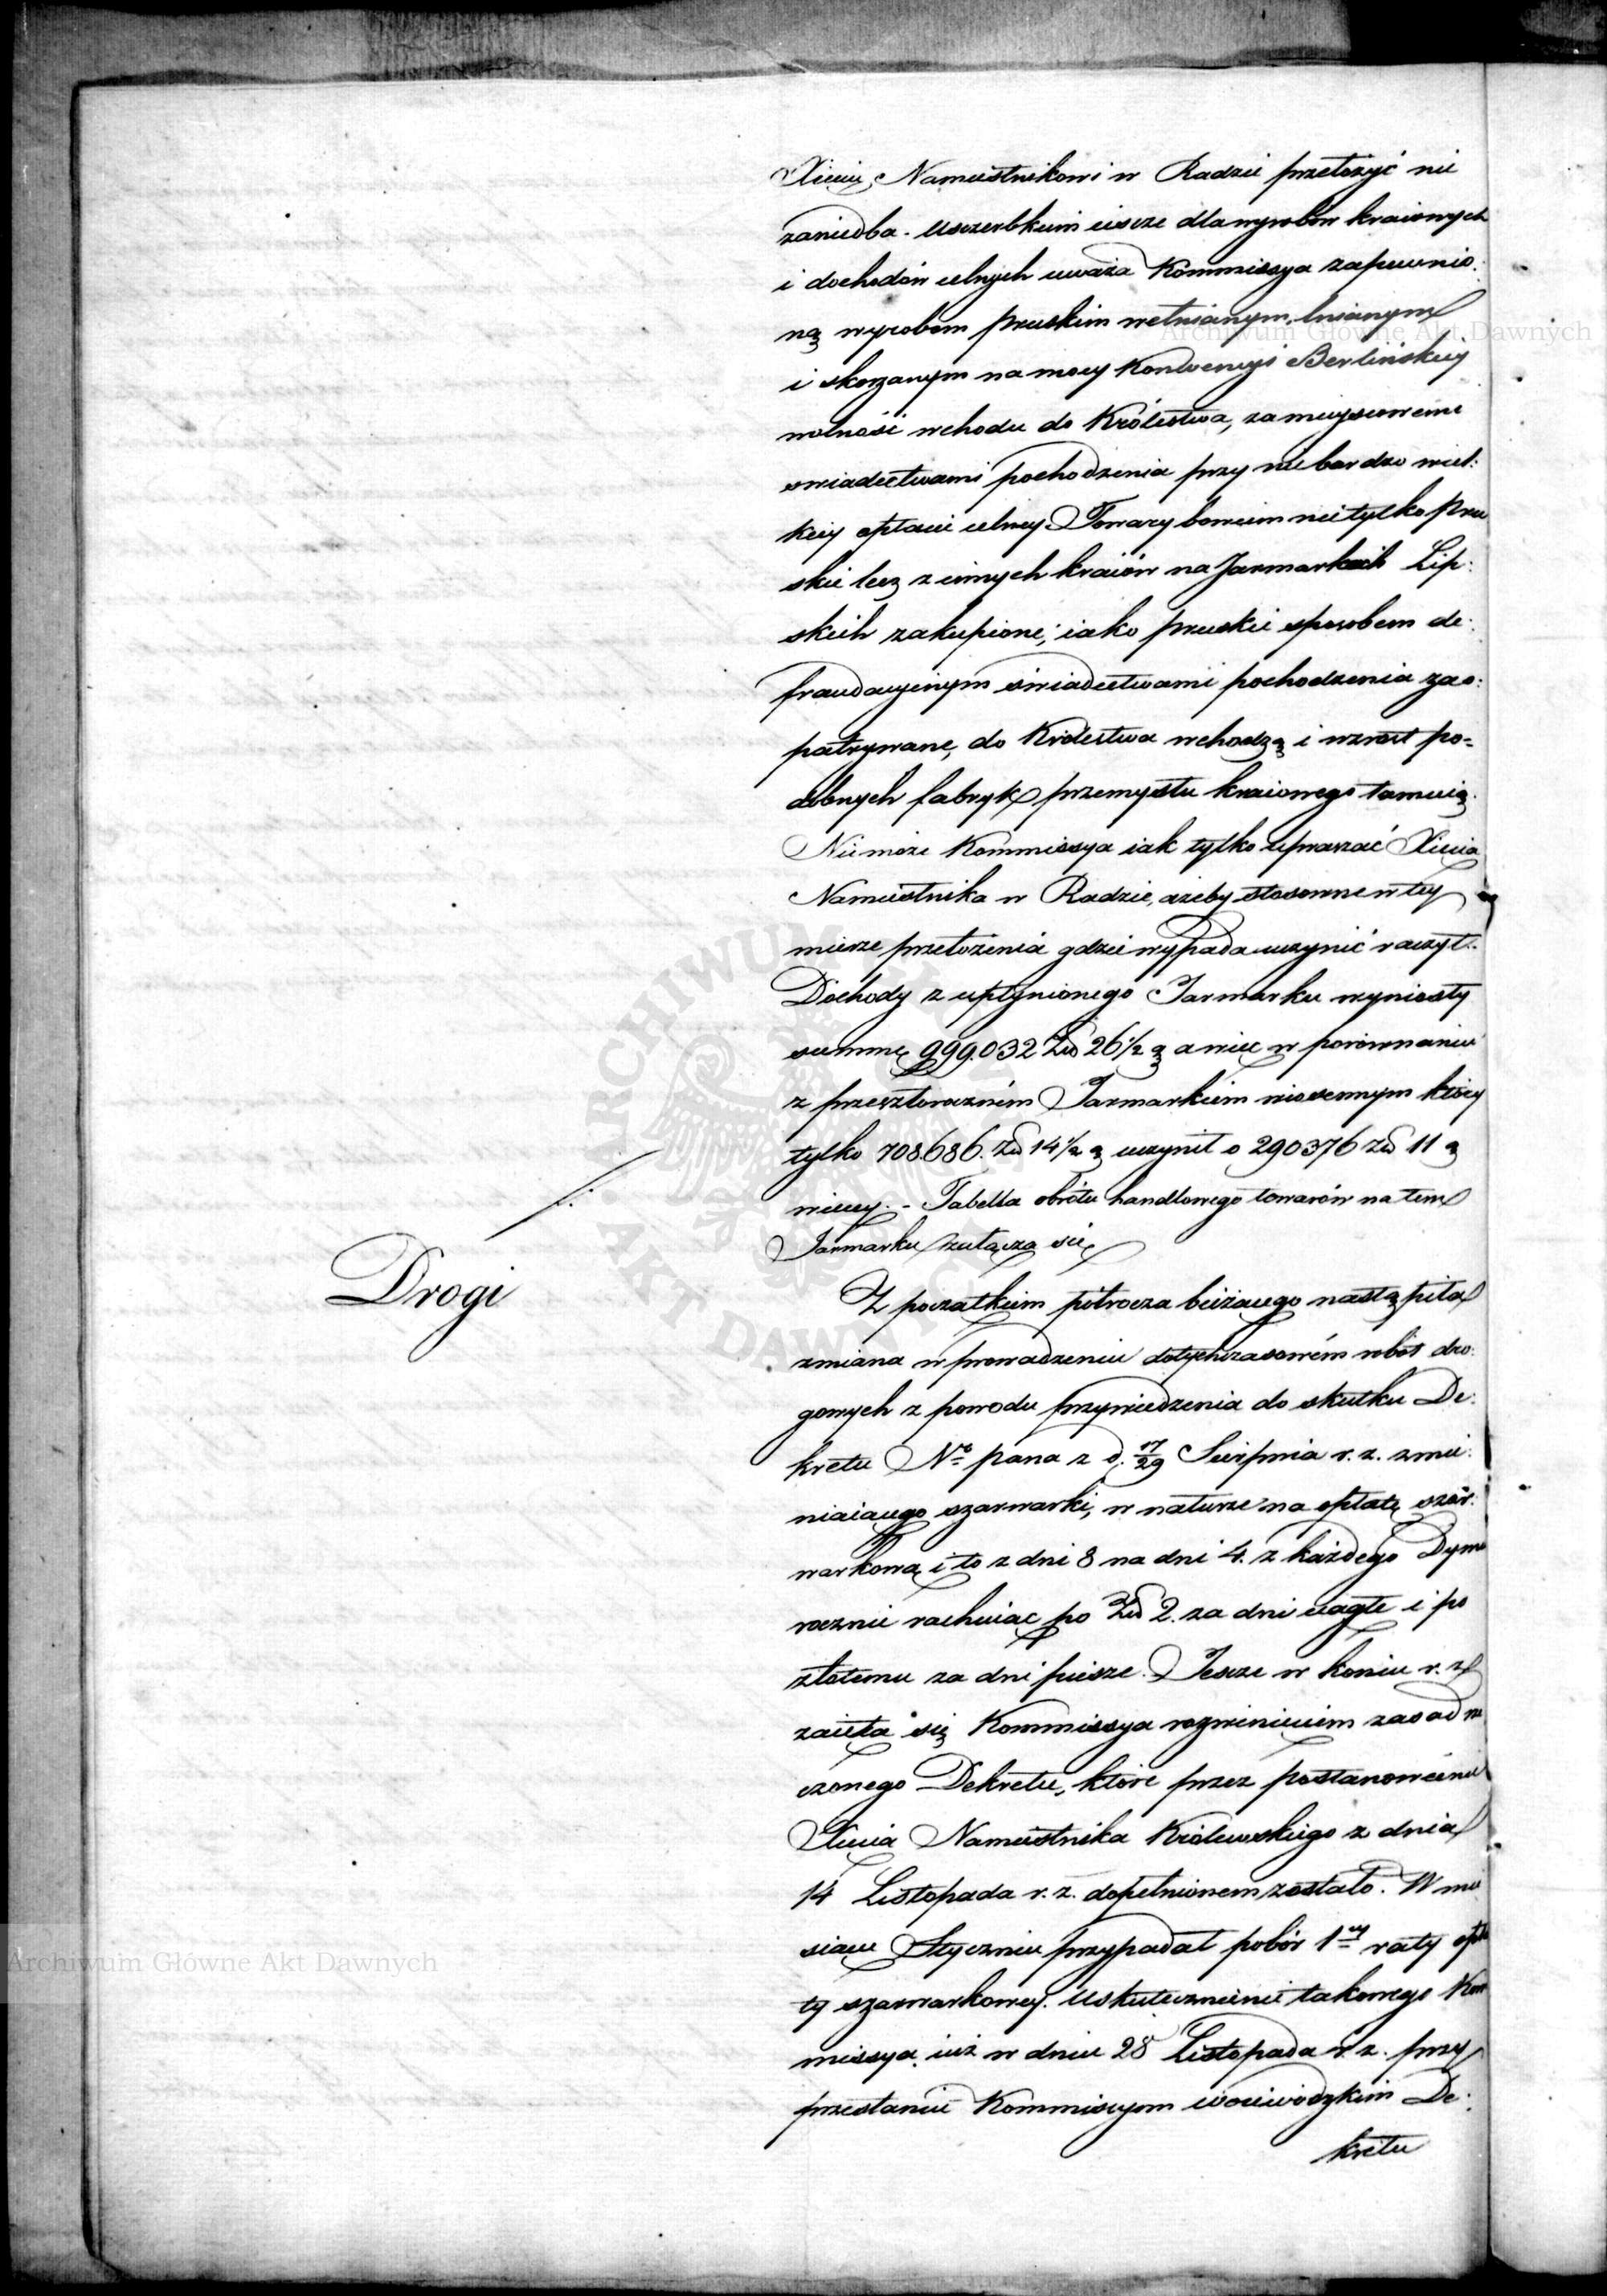 Xięciu Namiestnikowi w Radzie przełożyć nie
zaniedba. Uszczerbkiem ieszcze dla wyrobów kraiowych
i dochodów celnych uważa Kommissya zapewnio:
ną wyrobom pruskim wełnianym, lnianym
i skorzanym na mocy Konwencyi Berlińskiey
wolność wchodu do Królestwa, za mieyscowemi
swiadectwami pochodzenia przy nie bardzo wiel:
kiey opłacie celney. Towary bowiem nie tylko Pru
skie lecz z innych kraiów na Jarmarkach Lip:
skich zakupione, iako pruskie sposobem de:
fraudacyinym świadectwami pochodzenia zao:
patrywane, do Królestwa wchodzą i wzrost po=
dobnych fabryk przemysłu kraiowego tamuią.
Nie może Kommissya iak tylko upraszać Xięcia
Namiestnika w Radzie, ażeby stosowne w tey
mierze przełożenia gdzie wypada uczynić raczył.
Dochody z upłynionego Jarmarku wyniosły
summę 999.032 Zł 26 1/2 g a więc w porównaniu
z przeszłoroczném Jarmarkiem wiosennym który
tylko 708.686. Zł 14 1/2 g uczynił o 290376 Zł 11 g
więcey. - Tabella obrotu handlowego towarów na tem
Jarmarku załącza się
Drogi
Z początkiem półrocza bieżącego nastąpiła
zmiana w prowadzeniu dotychczasowém robót dro:
gowych z powodu przywiedzenia do skutku De:
kretu No pana z d. 17/29 Sierpnia r. z. zmie:
niaiącego szarwarki, w naturze na opłatę szar:
warkową i to z dni 8 na dni 4. z każdego Dymu
rocznie rachuiąc po Zł 2. za dni ciągłe i po
złotemu za dni piesze. Jeszcze w końcu r. z
zaięła się Kommissya rozwinięciem zasad rze
czonego Dekretu, które przez postanowienie
Xięcia Namiestnika Królewskiego z dnia
14 Listopada r. z. dopełnionem zostało. W mie
siącu Styczniu przypadał pobór 1ey raty opła
ty szarwarkowey. Uskutecznienie takowego Kom
missya iuż w dniu 28 Listopada r. z. przy
przesłaniu Kommissyom woiewodzkim De:
kretu
Archiwum Główne Akt Dawnych
Archiwum Główne Akt Dawnych